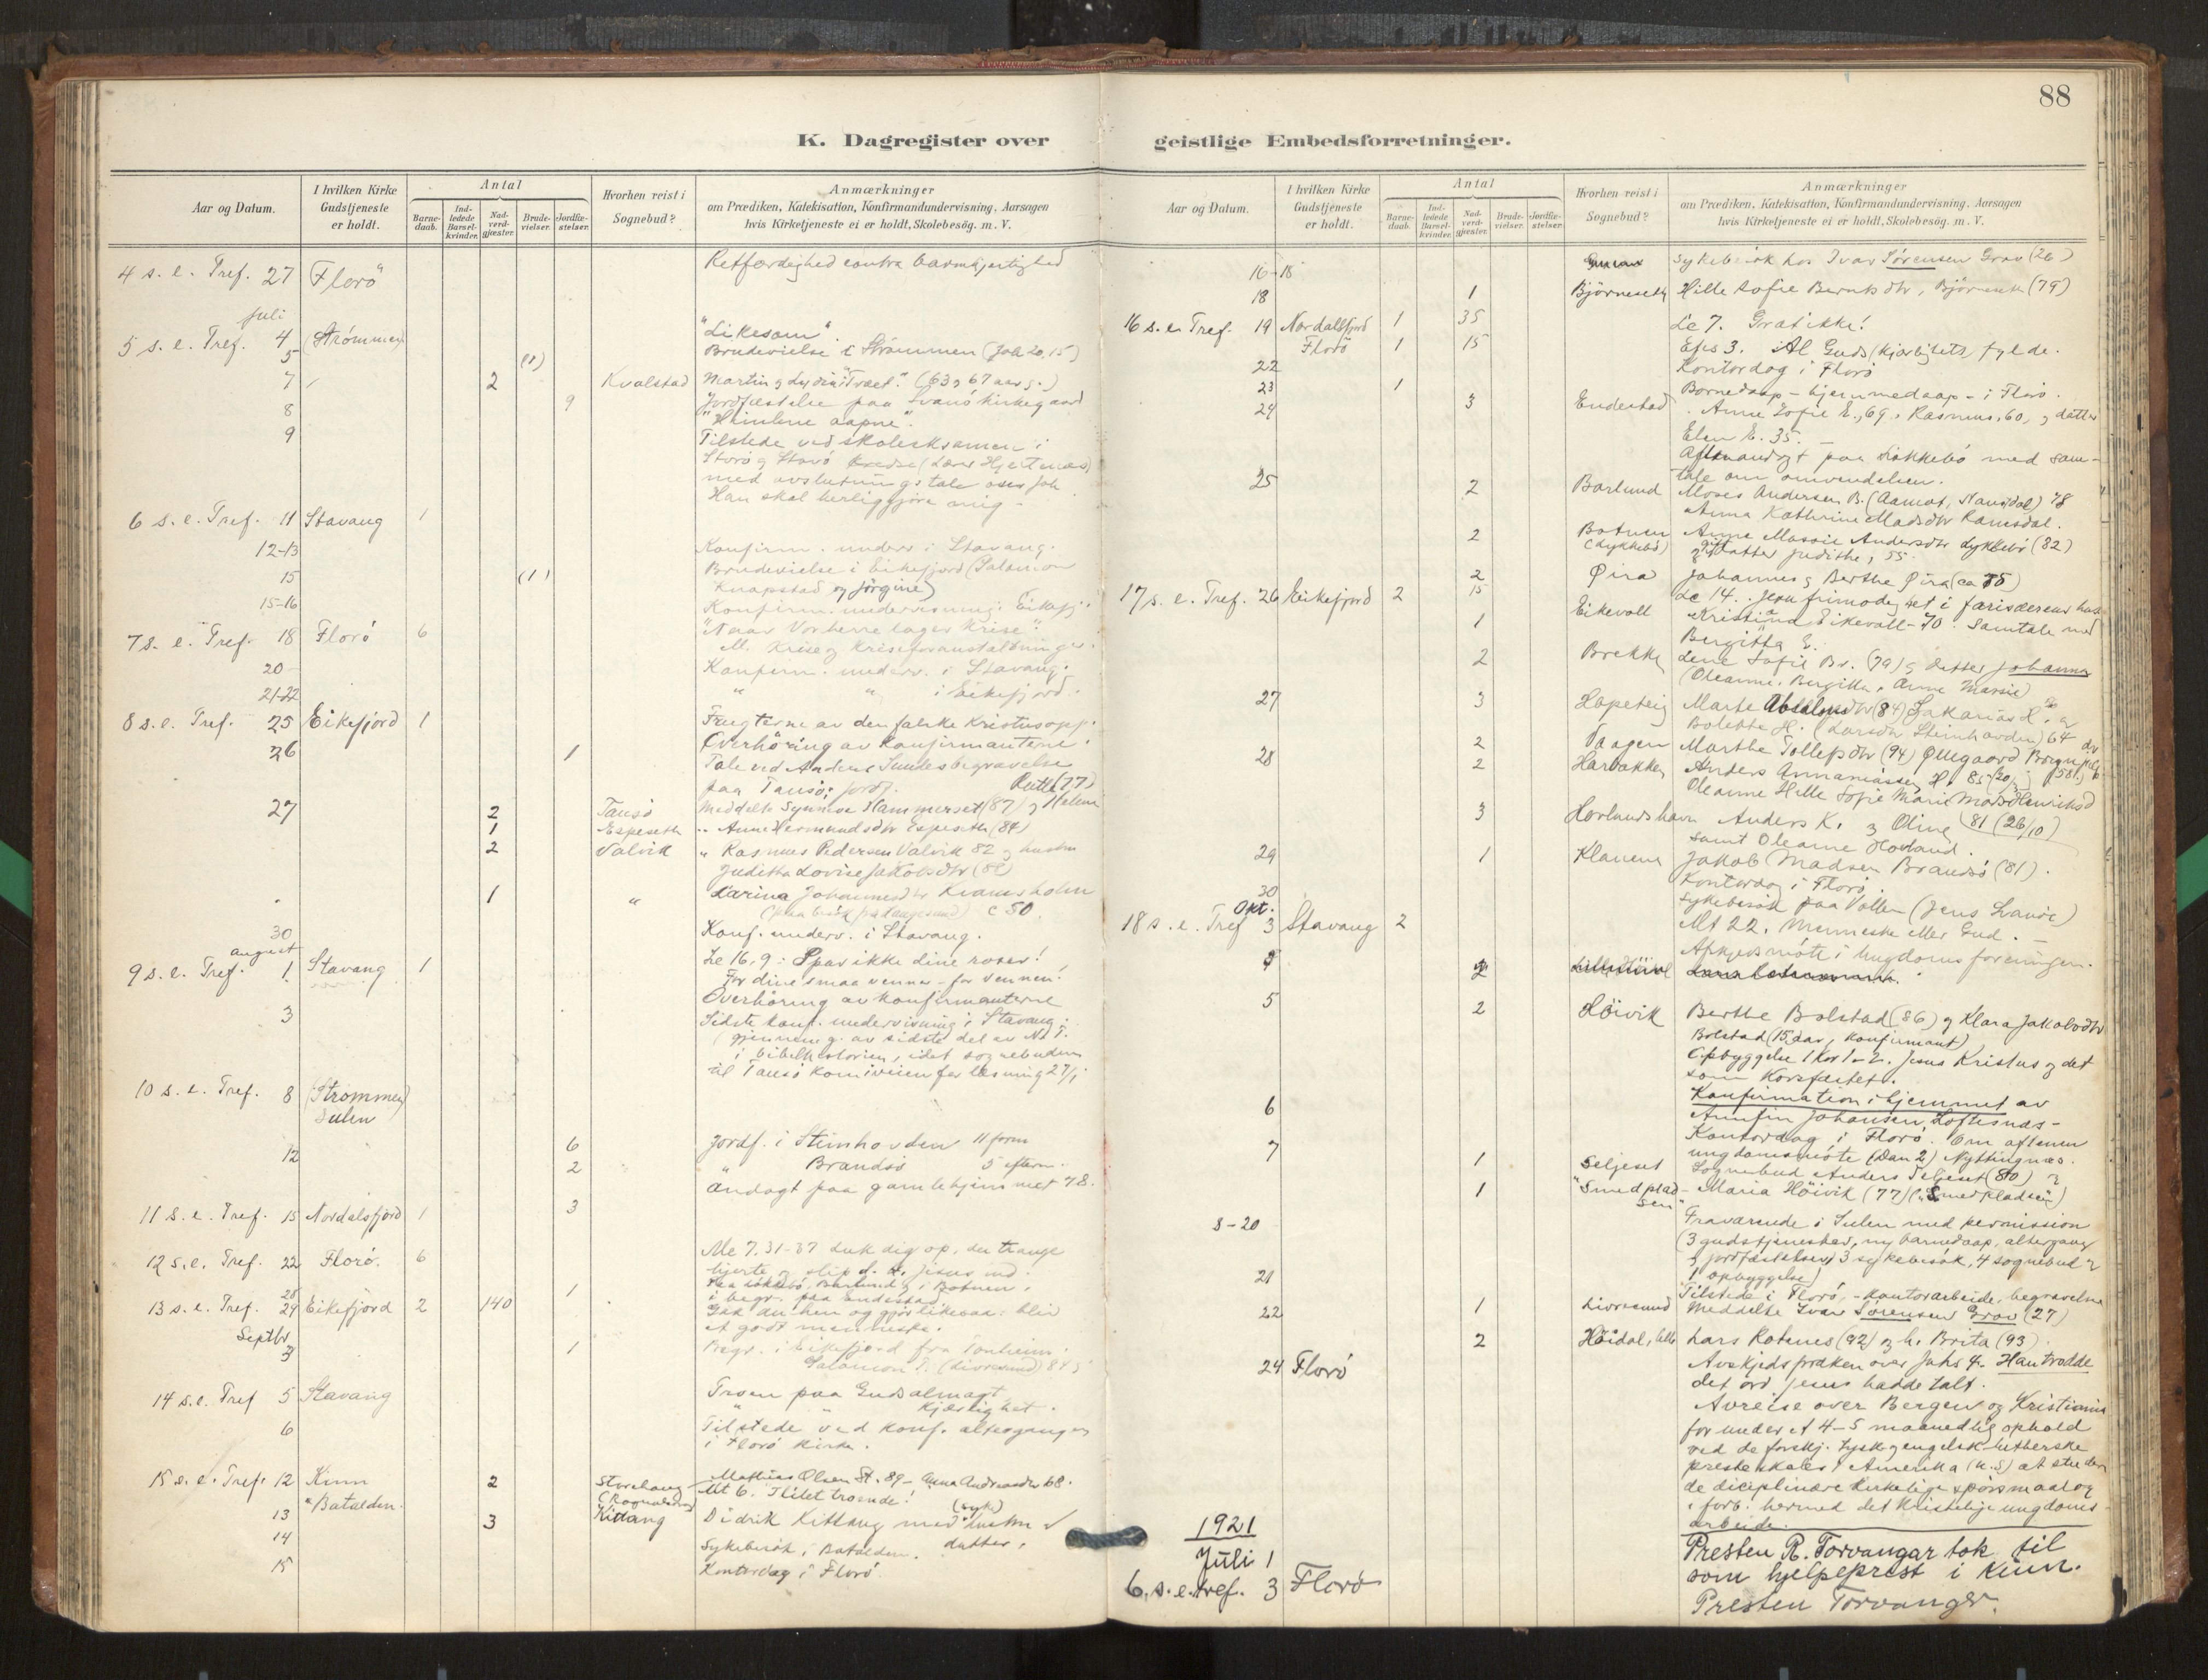 88
K. Dagregister over geistlige Embedsforretninger.
Aar og Datum.
I hvilken Kirke Gudstjeneste er holdt.
Antal
Barne-daab.
Ind-ledede Barsel-kvinder.
Nad-verd-gjæster.
Brude-vielser.
Jordfæ-stelser.
Hvorhen reist i Sognebud?
Anmærkninger
om Prædiken, Katekisation, Konfirmandundervisning, Aarsagen
hvis Kirketjeneste ei er holdt, Skolebesög. m. V.
4 s. e. Tref. 27 Florö Retfærdighed contra barmhjertighed
Juli
5 s. e. Tref. 4 (Strømmen) "Likesom".
5 (1) Brudevielse i Strømmen (Joh 20,15)
7 2 Kvalstad Martin og Lydia Tvæt. (63 og 67 aar g.)
8 9 Jordfæstelse paa Svanö kirkegaard
"Himlene aapne".
9 Tilstede ved skoleeksamen i
med avslutningstale over Joh
Han skal herliggjöre mig -
6 s. e. Tref. 11 Stavang 1
12-13 Konfirm. underv. i Stavang.
15 (1) Brudevielse i Eikefjord (Salamon
Knapstad og Jørgine)
15-16 Konfirm. undervisning i Eikefj.
7 s. e. Tref. 18 Florö 6 "Naar Vorherre lager Krise".
M. Krise og Kriseforanstaltninger.
20 Konfirm. underv. i Stavang.
21-22 " " i Eikefjord.
8 s. e. Tref. 25 Eikefjord 1 Frugterne av den falske Kristusopp.
Overhöring av Konfirmanterne.
26 1 Tale ved Anders Sundes begravelse
paa Tansö; jordf.
27 2 Tansö Meddelte Synneve Hammerset (87) og Helene
1 Espeseth " Anne Hermundsdtr Espeseth (84)
2 Valvik " Rasmus Pedersen Valvik 82 og hustru
Juditha Lovise Jakobsdtr (82)
1 " Larina Johannesdtr Kvamsholm
c 50.
30 Konf. underv. i Stavang.
august
9 s. e. Tref. 1. Stavang 1 Lc 16, 9: Spar ikke dine roser!
For dine smaa venner - for vennen!
Overhöring av konfirmanterne
3 Sidste konf. undervisning i Stavang.
(gjennemg. av sidste del av N. T.
i bibelhistorien, idet sognebudene
til Tansö kom iveien for læsning 27/7
10 s. e. Tref. 8 (Strømmen)
Sulen
12 6 Jordf. i Steinhovden 11 form
2 " Brandsö 5 efterm.
Andagt paa gamlehjemmet 78.
11 s. e. Tref. 15 Nordalsfjord 1 3
12 s. e. Tref. 22 Florö. 6 Mc 7. 31-37 Luk dig op, du trange
hjerte, og slip d. H. Jesus ind.
28 1 i begr. paa Endestad
13 s. e. Tref. 29 Eikefjord 2 140 Gak du hen og gjör likesaa: bliv
et godt menneske.
Septbr.
3 1 Begr. i Eikefjord fra Tonheim:
Salamon T. (Livresund) 84
14 s. e. Tref 5 Stavang Troen paa Guds almagt
" " Kjærlighet.
6 Tilstede ved konf. altergangen
i Florö kirke.
15 s. e. Tref. 12 Kinn 2 Storehaug Mathias Olsen St. 89 - Anna Andreasdtr 68.
"Batalden Mt 6. I lidet troende!
13 3 Kittang Didrik Kittang med (syk) hustru &
datter.
14 Sykebesök i Batalden.
15 Kontordag i Florö.
Aar og Datum.
I hvilken Kirke Gudstjeneste er holdt.
Antal
Barne-daab.
Ind-ledede Barsel-kvinder.
Nad-verd-gjæster.
Brude-vielser.
Jordfæ-stelser.
Hvorhen reist i Sognebud?
Anmærkninger
om Prædiken, Katekisation, Konfirmandundervisning, Aarsagen
hvis Kirketjeneste ei er holdt, Skolebesög. m. V.
16-18 Sykebesök hos Ivar Sørensen Grov (26)
18 1 Björneseth Hille Sofie Berntsdtr, Björneseth (79)
16 s. e. Tref. 19 Nordalsfjord 1 35 Lc 7. Græt ikke!
Florö 1 15 Efes 3. Al Guds (kjærlighets) fylde.
22 Kontordag i Florö
23 1 Barnedaap - hjemmedaap - i Florö.
24 3 Endestad Anne Sofie E., 69, Rasmus, 60, og datter
Elen E. 35.
Aftenandagt paa Lökkebö med sam-
tale om omvendelsen.
25 2 Barlund Moses Andersen B. (Aamot, Nausdal) 78
Anna Kathrine Madsdtr Ramsdal.
2 Botnen (Lykkebö) Anne Massie Andersdtr Lykkebö (82)
og datter Judithe, 55.
2 Øira Johannes og Berthe Øira (ca 75)
17 s. e. Tref. 26 Eikefjord 2 15 Lc 14. Jesu frimodighet i farisæerens hus
1 Eikevoll Kristina Eikevoll - 70. Samtale med
Bergitta E.
2 Brekke Lene Sofie Br. (79) og datter Johanna
(Oleanne, Bergitta, Anne Marsie)
27 3 Hopeteig Marte Absalonsdtr (84) Sakarias H. og
Bolette H. (Larsdtr Steinhovden) 64
2 Vaagen Marthe Tollefsdtr (94)
28 2 Harbakken Anders Annaniassen H. 85
3 Hovlandshavn Anders K. og Oline 81 (26/10)
samt Oleane Hovland.
29 1 Klavene Jakob Madsen Brandsö (81).
Kontordag i Florö.
30 Sykebesök paa Vollen (Jens Svanöe)
Okt.
18 s. e. Tref 3 Stavang 2 Mt 22. Menneske eller Gud. -
Avskjedsmöte i ungdomsforeningen.
5 2 Höivik Berthe Bolstad (86) og Klara Jakobsdtr
Bolstad (15 aar, konfirmant)
Opbyggelse 1 Kor 1-2. Jesus Kristus og det
som Korsfæstet.
6 Konfirmation i hjemmet av
Arnfin Johansen Loftesnæs -
7 Kontordag i Florö. Om aftenen
ungdomsmöte (Dan 2) Nyttingnæs.
1 Seljeset Sognebud Anders Seljeset (80) &
1 "Smedpladsen" - Maria Höivik (77) ("Smedpladsen")
8-20 Fraværende i Sulen med permission
(3 gudstjenester, m barnedaap, altergang
& jordfæstelser, 3 sykebesök, 4 sognebud &
1 opbyggelse)
21 Tilstede i Florö, - kontorarbeide, begravelse
22 1 Livresund Meddelte Ivar Sørensen Grov (27)
2 Höidal, lille Lars Rotenes (92) og h. Brita (93)
24 Florö Avskjedspræken over Johs 4. Han trodde
det ord Jesus hadde talt.
Avreise over Bergen og Kristiania
for under et 4-5 maanedlig ophold
ved de forskj. tysk og engelsk lutherske
presteskoler i Amerika (U.S) at studere
de diciplinære kirkelige spörsmaal og
i forb. hermed det kristelige ungdoms-
arbeide.
1921
Juli 1 Presten R. Torvanger tok til
som hjelpeprest i Kinn.
6. s. e. tref. 3 Florö Presten Torvanger.